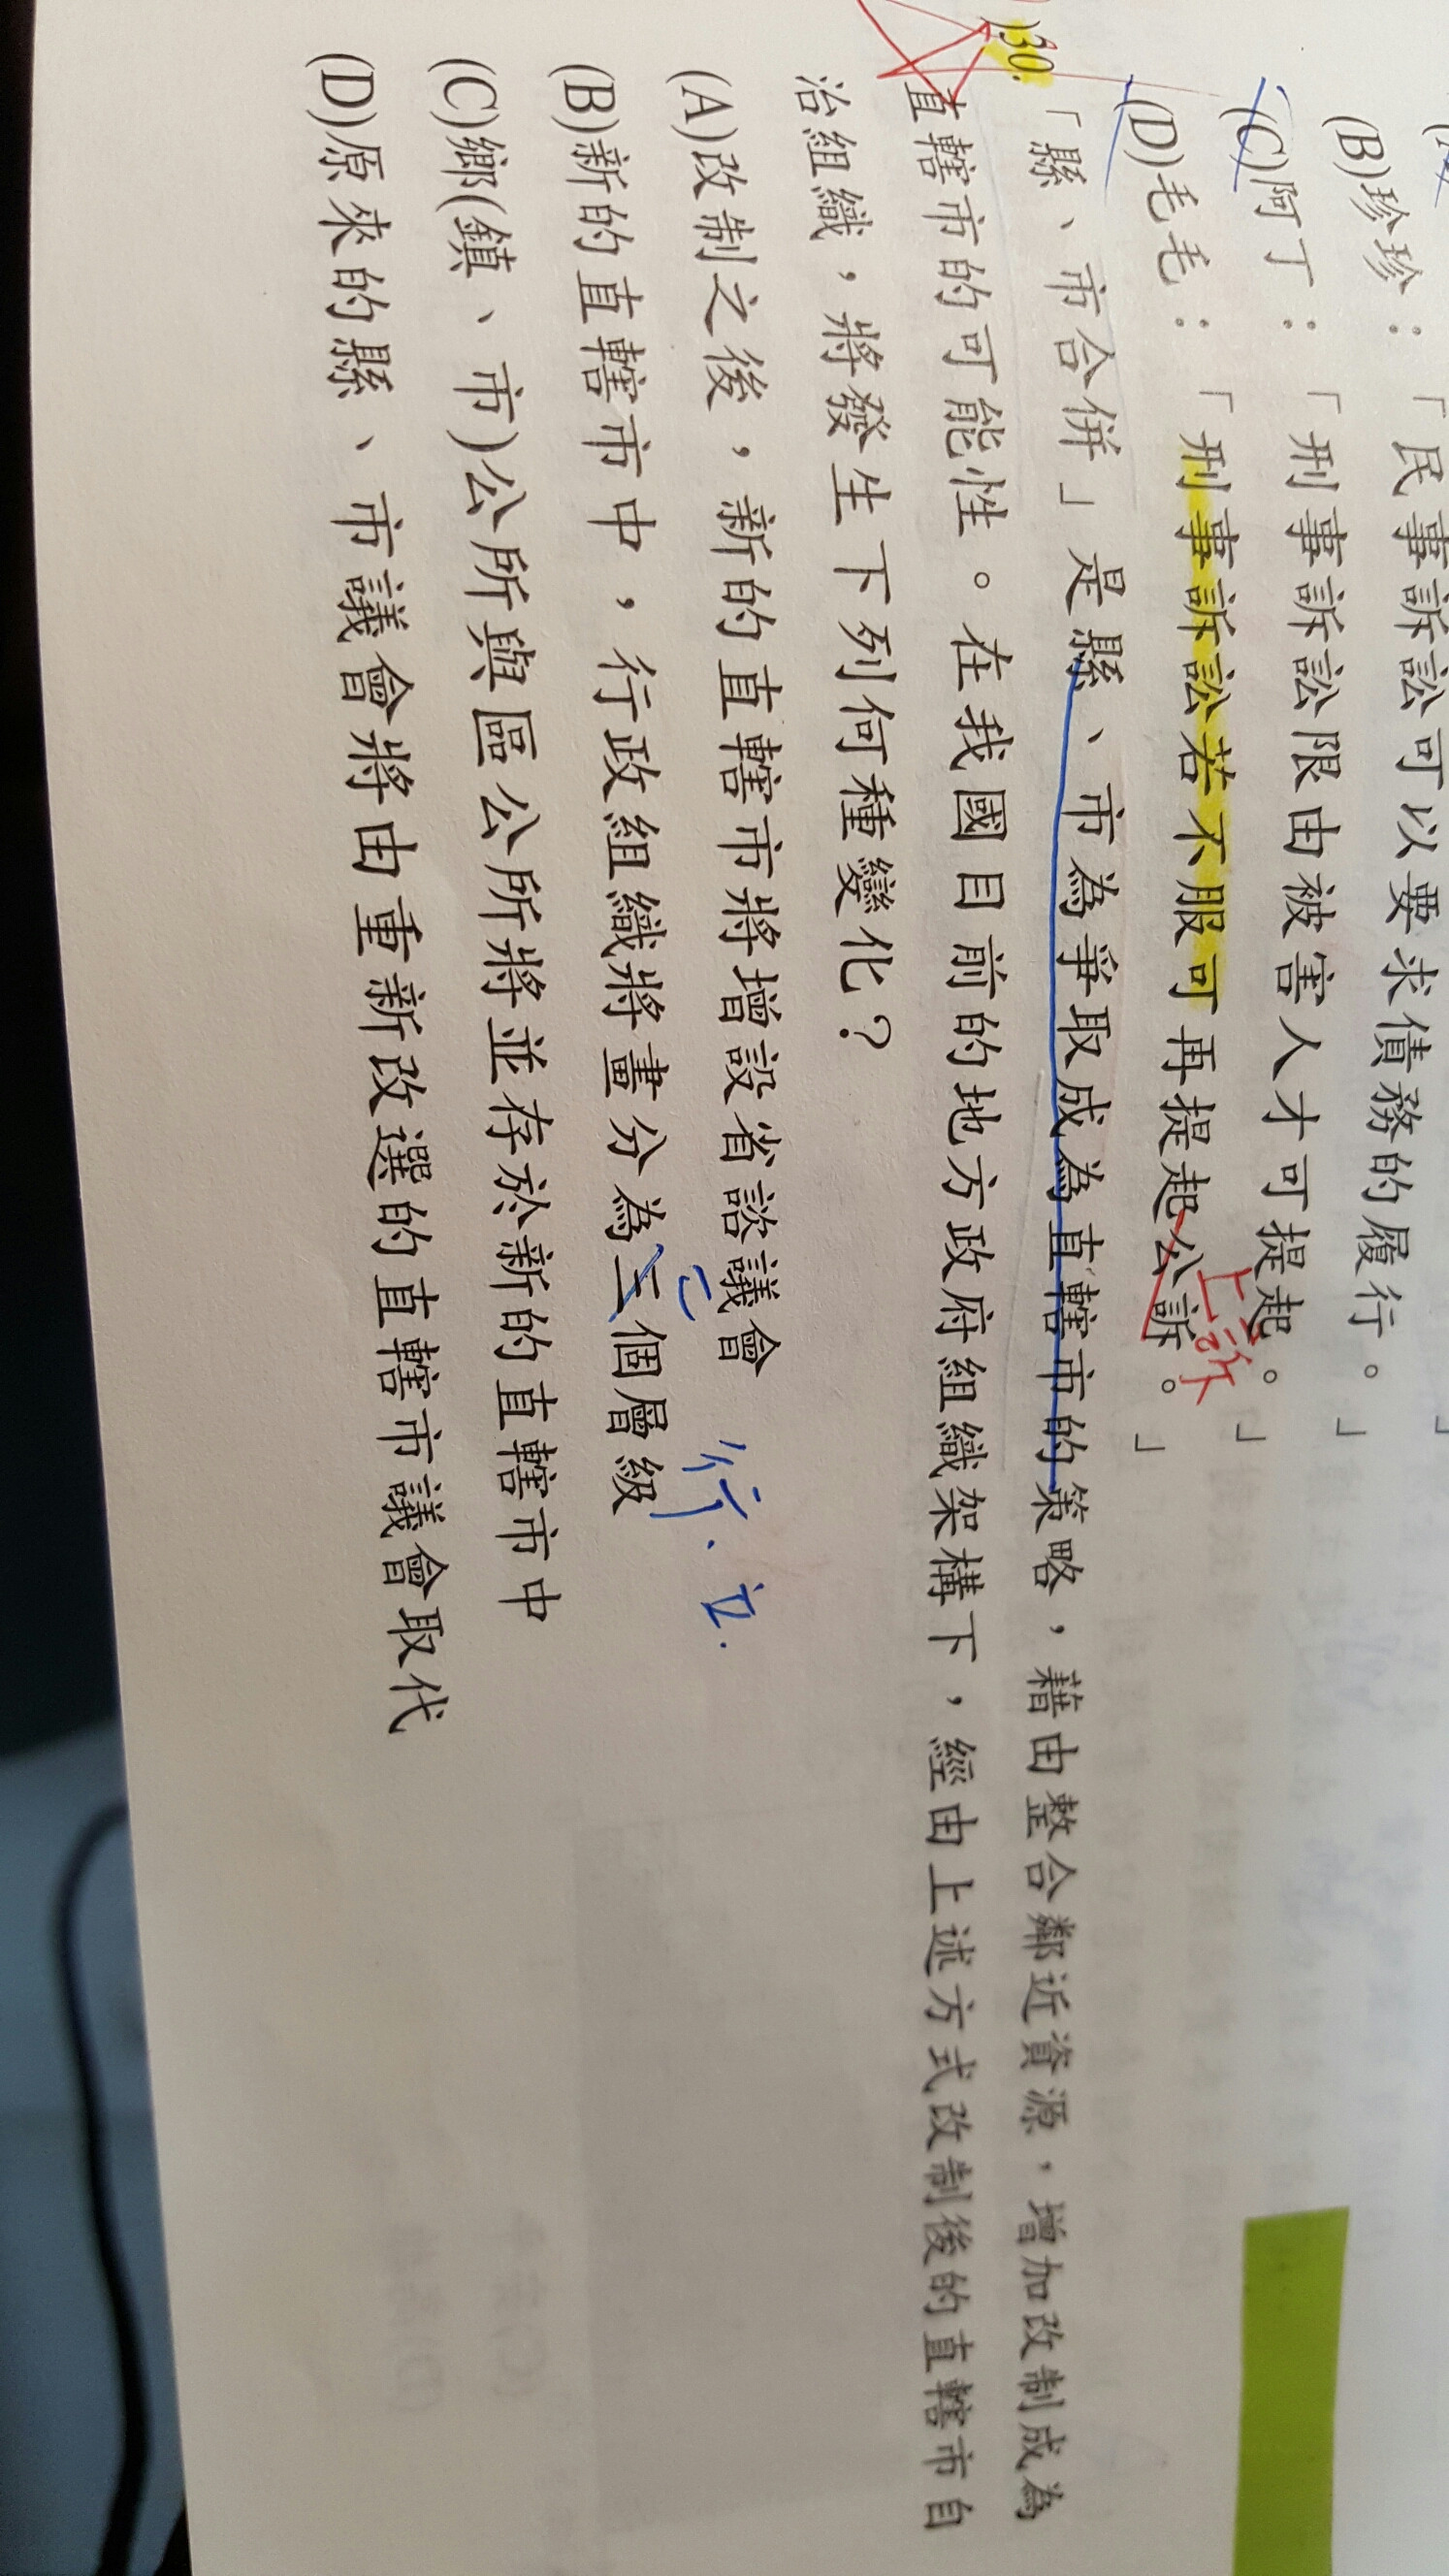 (B)珍珍：「民事訴訟可以要求債務的履行。」
(C)阿丁：「刑事訴訟限由被害人才可提起。」
上訴
(D)毛毛：「刑事訴訟若不服可再提起公訴。」
)30.「縣、市合併」是縣、市為爭取成為直轄市的策略，藉由整合鄰近資源，增加改制成為
直轄市的可能性。在我國目前的地方政府組織架構下，經由上述方式改制後的直轄市自
治組織，將發生下列何種變化？
(A)改制之後，新的直轄市將增設省諮議會
二 行、立.
(B)新的直轄市中，行政組織將畫分為三個層級
(C)鄉(鎮、市)公所與區公所將並存於新的直轄市中
(D)原來的縣、市議會將由重新改選的直轄市議會取代